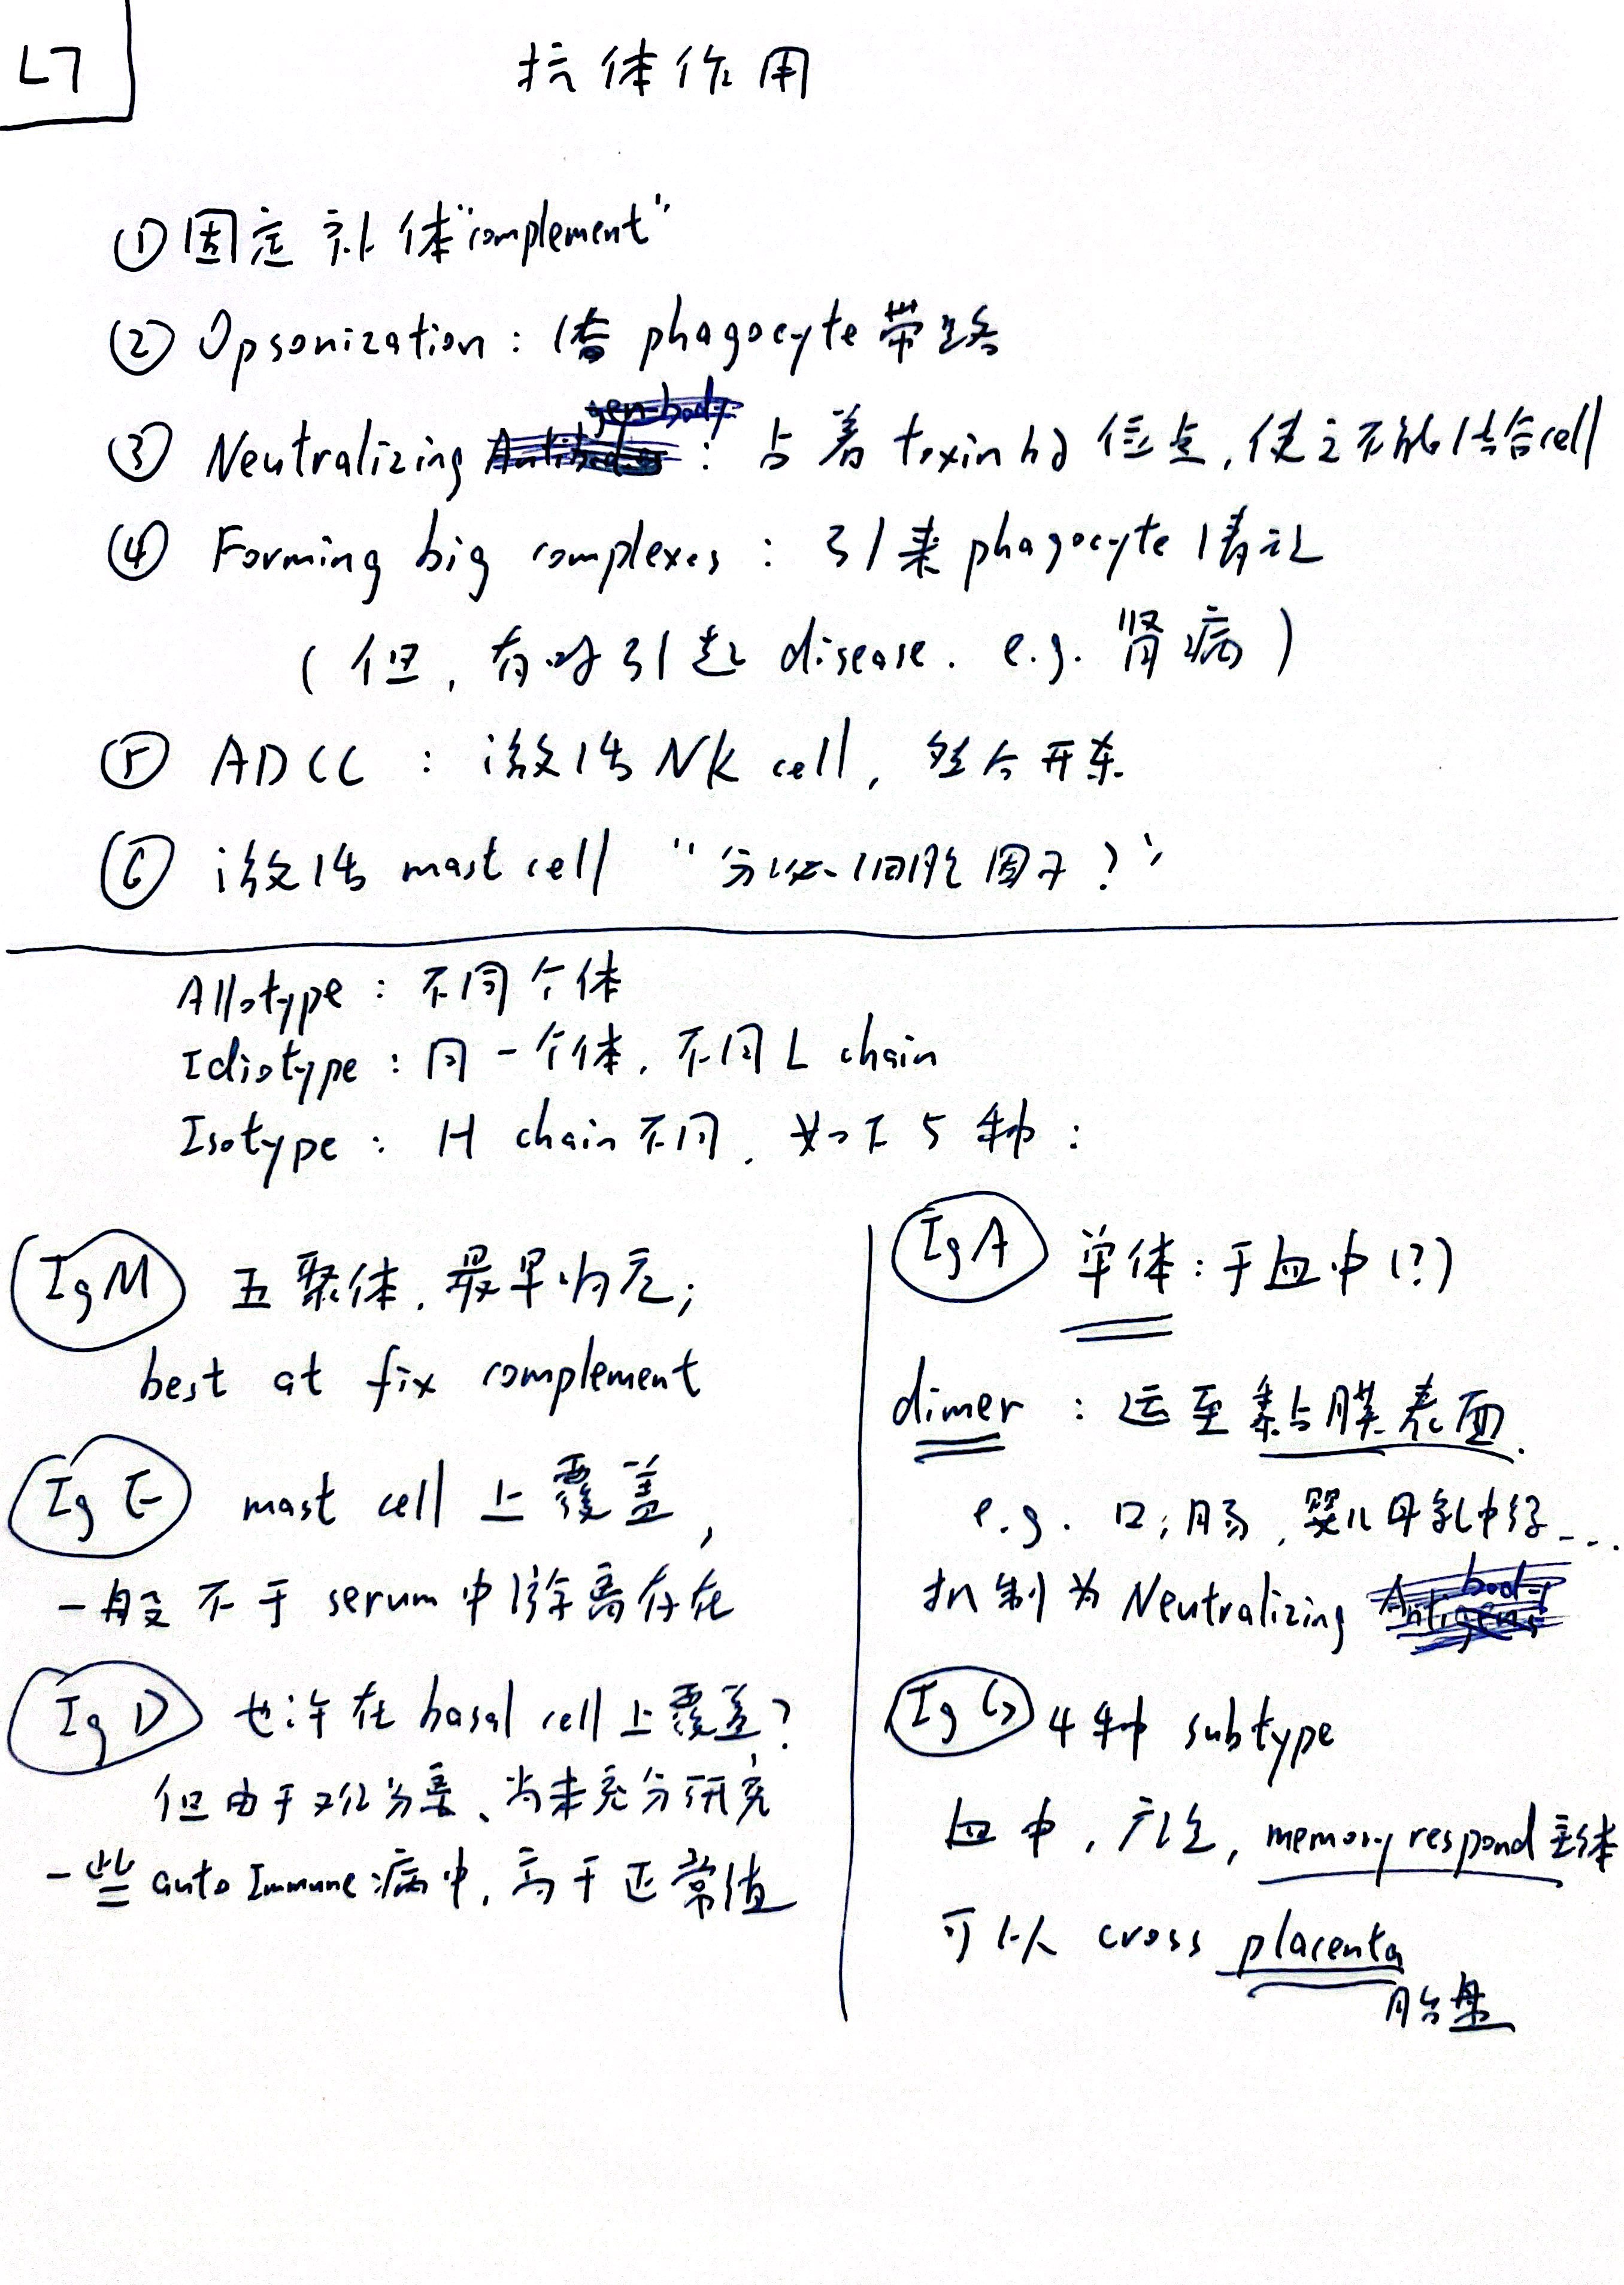 L7
抗体作用
① 固定补体"complement"
② Opsonization : 借 phagocyte 带路
③ Neutralizing : 占着 toxin的 位点,使之不能结合cell
④ Forming big complexes : 引来 phagocyte 清
( 但, 有时引起 disease. e.g. 肾病 )
⑤ ADCC : 激活 NK cell,
⑥ 激活 mast cell "分泌细胞因子?"
Allotype : 不同个体
Idiotype : 同一个体, 不同 L chain
Isotype : H chain 不同, 如下 5 种 :
IgM 五聚体, 最早响应;
best at fix complement
IgE mast cell 上覆盖,
一般不于 serum 中游离存在
IgD 也许在 basal cell 上覆盖?
但由于 、尚未充分研究
一些 auto Immune 病中, 高于正常值
IgA 单体 : 于血中 (?)
dimer : 运至黏膜表面.
e.g. 口; 肠, 婴儿母乳中得 ...
机制为 Neutralizing
IgG 4种 subtype
血中, 产生, memory respond 主体
可以 cross placenta
胎盘